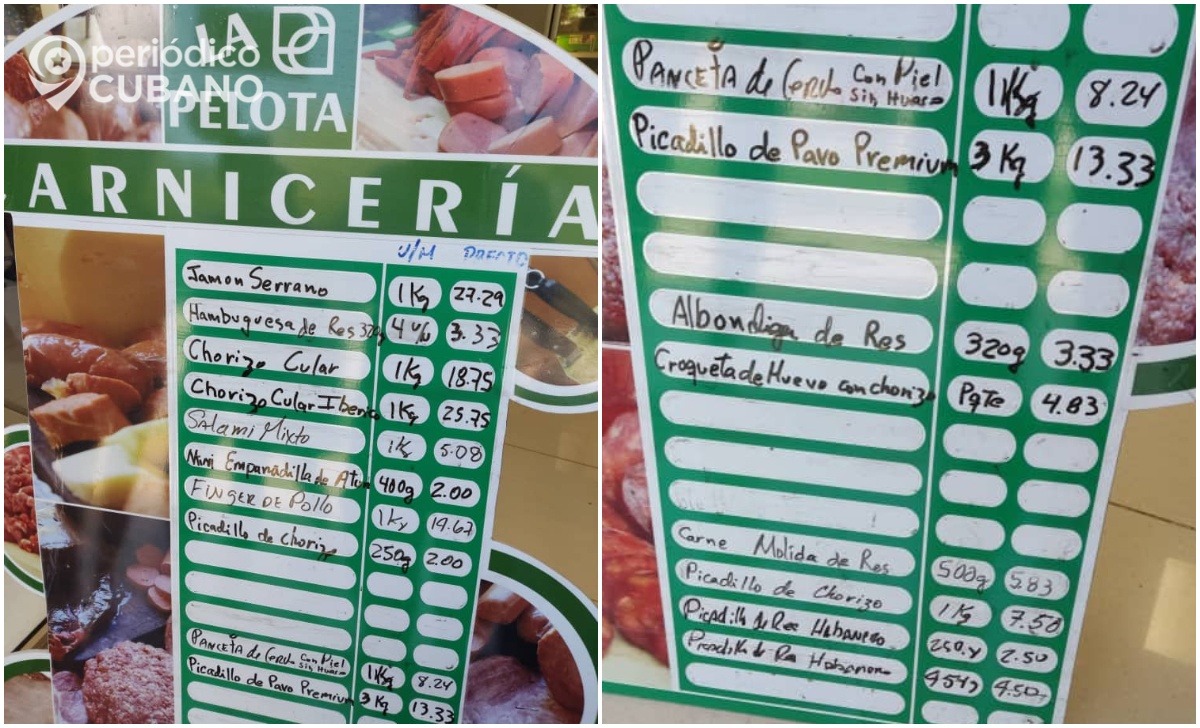 periódico
CUBANO
LA
PELOTA
CARNICERÍA
U/M PRECIO
Jamon Serrano 1Kg 27.29
Hambuguesa de Res 320g 4 u/u 3.33
Chorizo Cular 1Kg 18.75
Chorizo Cular Iberico 1Kg 25.75
Salami Mixto 1K 5.08
Mini Empanadilla de Atun 400g 2.00
FINGER DE Pollo 1Kg 14.67
Picadillo de chorizo 250g 2.00
PANCETA de Cerdo Con Piel Sin Hueso 1Kg 8.24
Picadillo de Pavo Premium 3 Kg 13.33
PANCETA de Cerdo Con Piel Sin Hueso 1Kg 8.24
Picadillo de Pavo Premium 3 Kg 13.33
Albondiga de Res 320g 3.33
Croqueta de Huevo con chorizo PqTe 4.83
Carne Molida de Res 500g 5.83
Picadillo de Chorizo 1 Kg 7.50
Picadillo de Res Habanero 250g 2.50
Picadillo de Res Habanero 454g 4.50